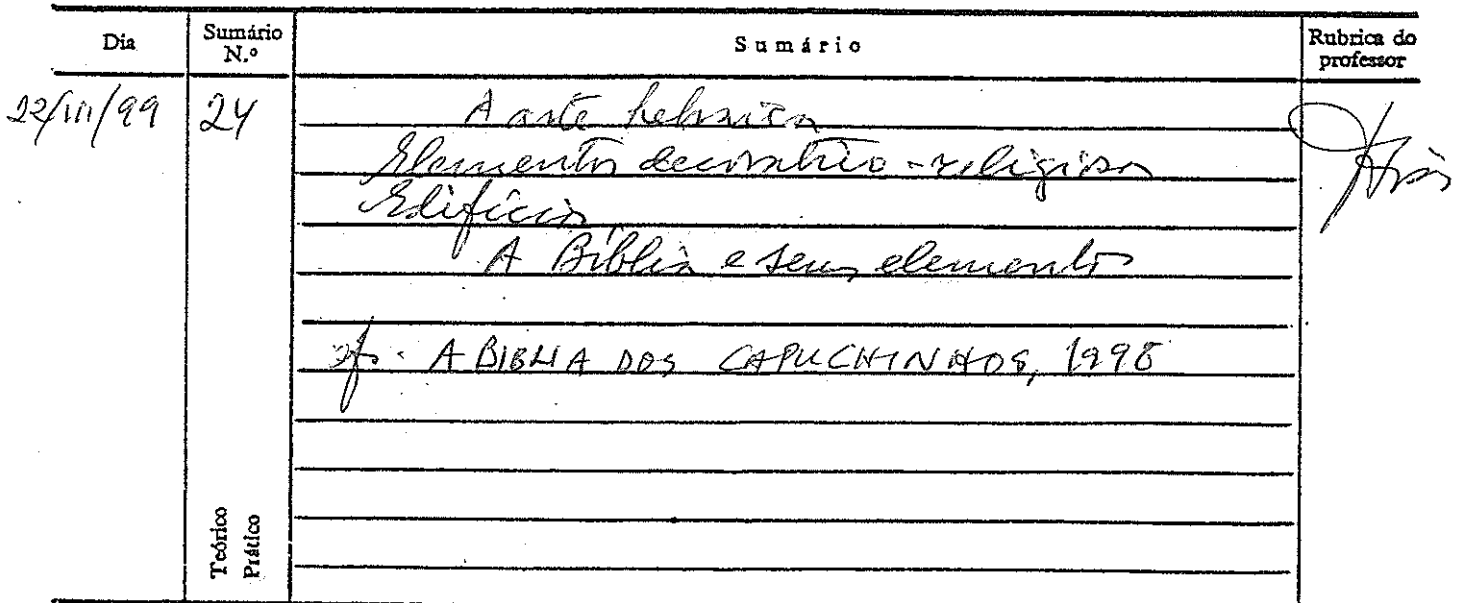 Dia Sumário N.º Sumário Rubrica do professor
22/III/99 24 A arte hebraica
Elementos decorativo-religiosos
Edifícios
A Bíblia e seus elementos
cf. A BIBLIA DOS CAPUCHINHOS, 1998
Teórico
Prático